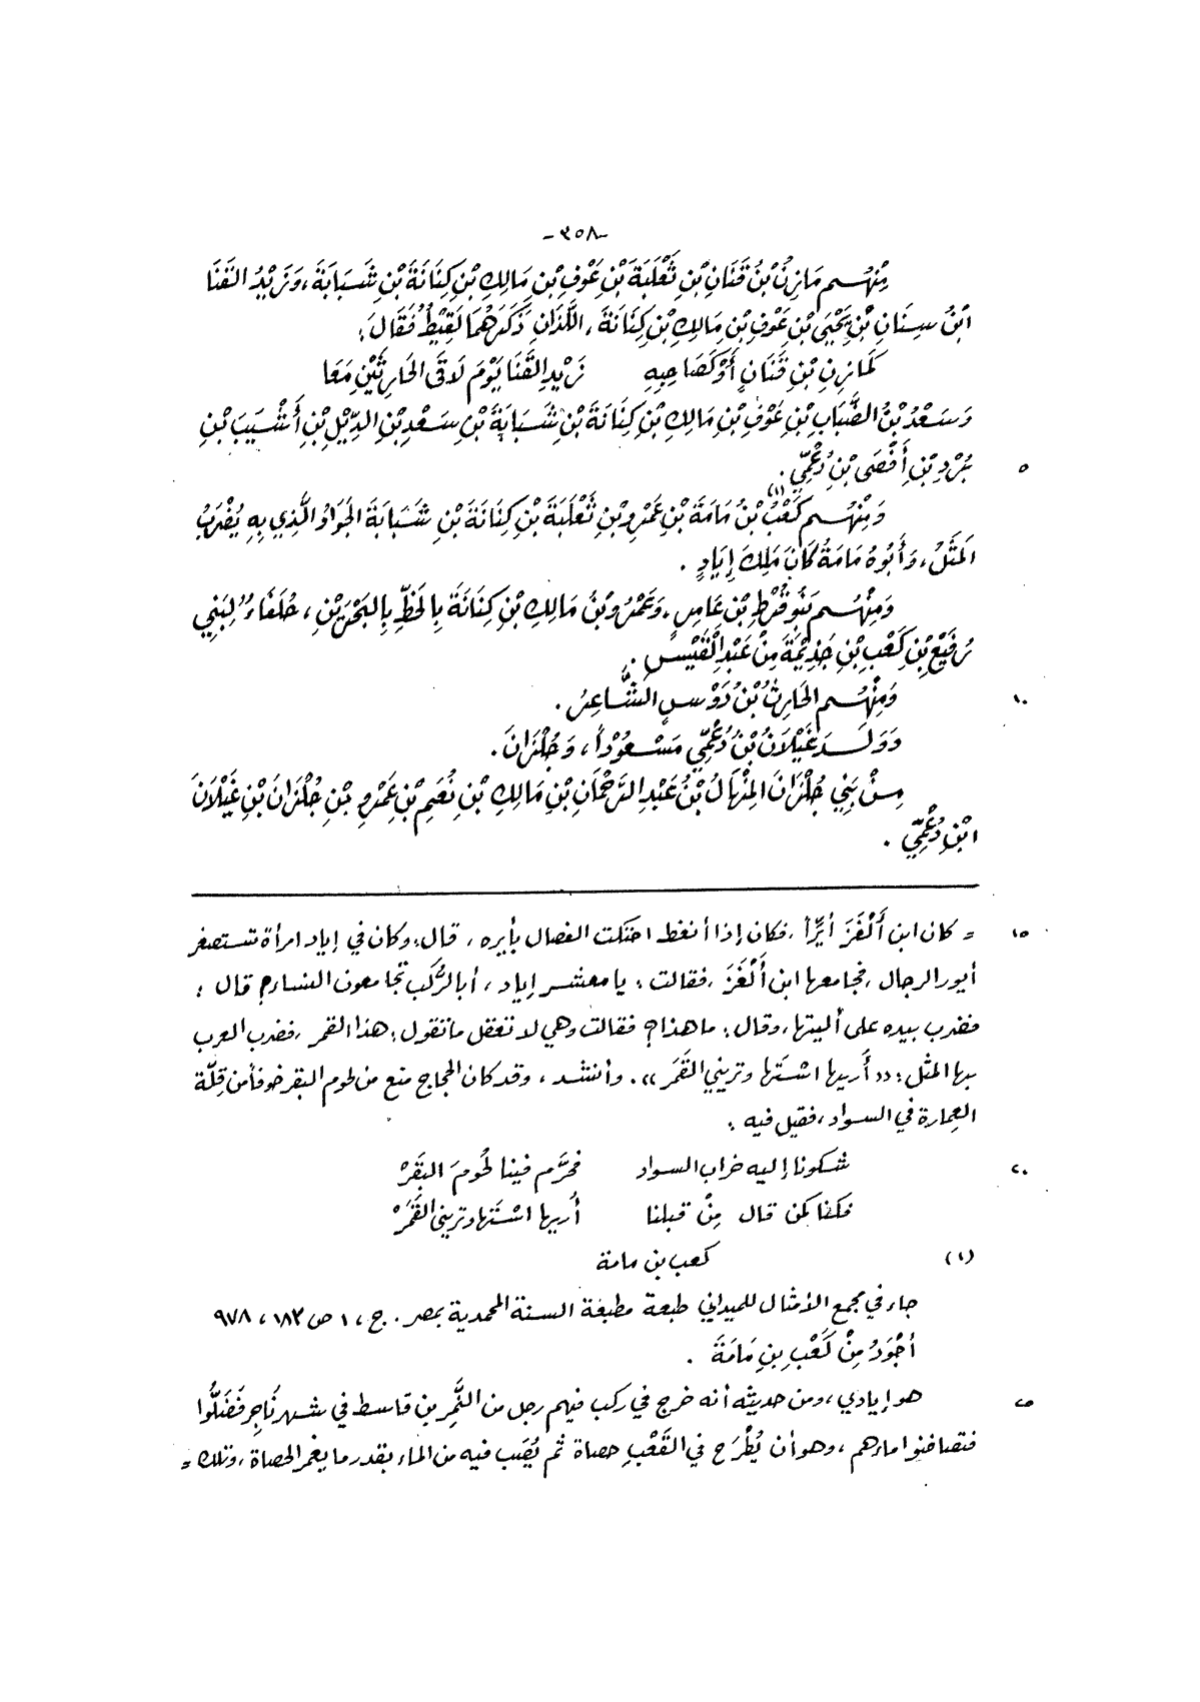 -٣٥٨-
مِنْهُم مَازِنُ بْنُ قَنَانِ بْنِ ثَعْلَبَةَ بْنِ عَوْفِ بْنِ مَالِكِ بْنِ كِنَانَةَ بْنِ شَبَابَةَ، وَزَيْدُ القَنَا
ابْنُ سِنَانِ بْنِ يَحْيَى بْنِ عَوْفِ بْنِ مَالِكِ بْنِ كِنَانَةَ، اللَّذَانِ ذَكَرَهُمَا لَقِيْطٌ فَقَالَ:
كَمَازِنِ بْنِ قَنَانٍ أَوْ كَصَاحِبِهِ زَيْدِ القَنَا يَوْمَ لَاقَى الحَارِثَيْنِ مَعَا
وَسَعْدُ بْنُ الضَّبَابِ بْنِ عَوْفِ بْنِ مَالِكِ بْنِ كِنَانَةَ بْنِ شَبَابَةَ بْنِ سَعْدِ بْنِ الدِّيْلِ بْنِ أَشْيَبَ بْنِ
٥ بُرْدِ بْنِ أَفْصَى بْنِ دُعْمِيّ.
وَمِنْهُم كَعْبُ(١) بْنُ مَامَةَ بْنِ عَمْرِو بْنِ ثَعْلَبَةَ بْنِ كِنَانَةَ بْنِ شَبَابَةَ الجَوَادُ الَّذِي بِهِ يُضْرَبُ
المَثَلُ، وَأَبُوهُ مَامَةُ كَانَ مَلِكَ إِيَادٍ.
وَمِنْهُم بَنُو قُرْطِ بْنِ عَامِرٍ. وَعَمْرُو بْنُ مَالِكِ بْنِ كِنَانَةَ بِالخَطِّ بِالبَحْرَيْنِ، حُلَفَاءُ لِبَنِي
رُفَيْعِ بْنِ كَعْبِ بْنِ جَذِيْمَةَ مِنْ عَبْدِ القَيْسِ.
١٠ وَمِنْهُم الحَارِثُ بْنُ دَوْسٍ الشَّاعِرُ.
وَوَلَدَ غَيْلَانُ بْنُ دُعْمِّي مَسْعُوْداً، وَجُلْزَانَ.
مِنْ بَنِي جُلْزَانَ المِنْهَالُ بْنُ عَبْدِ الرَّحْمَانِ بْنِ مَالِكِ بْنِ نُعَيْمِ بْنِ عَمْرِو بْنِ جُلْزَانَ بْنِ غَيْلَانَ
ابْنِ دُعْمِّي.
١٥ = كان ابن أَلْغَزَ أَيِّراً، فكان إذا أنغظ احتكت الفصال بأيره، قال: وكان في إياد امرأة تستصغر
أيور الرجال، فجامعها ابن أَلْغَزَ، فقالت: يا معشر إياد، أبالرُّكَب تجامعون النساء؟ قال:
فضرب بيده على أليتها، وقال: ما هذا؟ فقالت وهي لا تعقل ما تقول: هذا القمر، فضرب العرب
بها المثل: «أُريها اسْتَها وتريني القَمَر». وأنشد، وقد كان الحجاج منع من لحوم البقر خوفاً من قِلّة
العِمارة في السواد، فقيل فيه:
٢٠ شكونا إليه خراب السواد فحَرَّم فينا لُحومَ البَقَرْ
فكنا كمن قال مِنْ قبلنا أُريها اسْتَها وتريني القَمَرْ
(١) كعب بن مامة
جاء في مجمع الأمثال للميداني طبعة مطبعة السنة المحمدية بمصر. ج، ١ ص ١٨٣، ٩٧٨
أَجْوَدُ مِنْ كَعْبِ بِنِ مَامَةَ.
٢٥ هو إيادي، ومن حديثه أنه خرج في ركب فيهم رجل من النَّمِر بن قاسط في شهر نَاجِر فَضَلُّوا
فتصافنوا ماءهم، وهو أن يُطْرَح في القَعْبِ حصاة ثم يُصَب فيه من الماء بقدر ما يغمر الحصاة، وتلك =